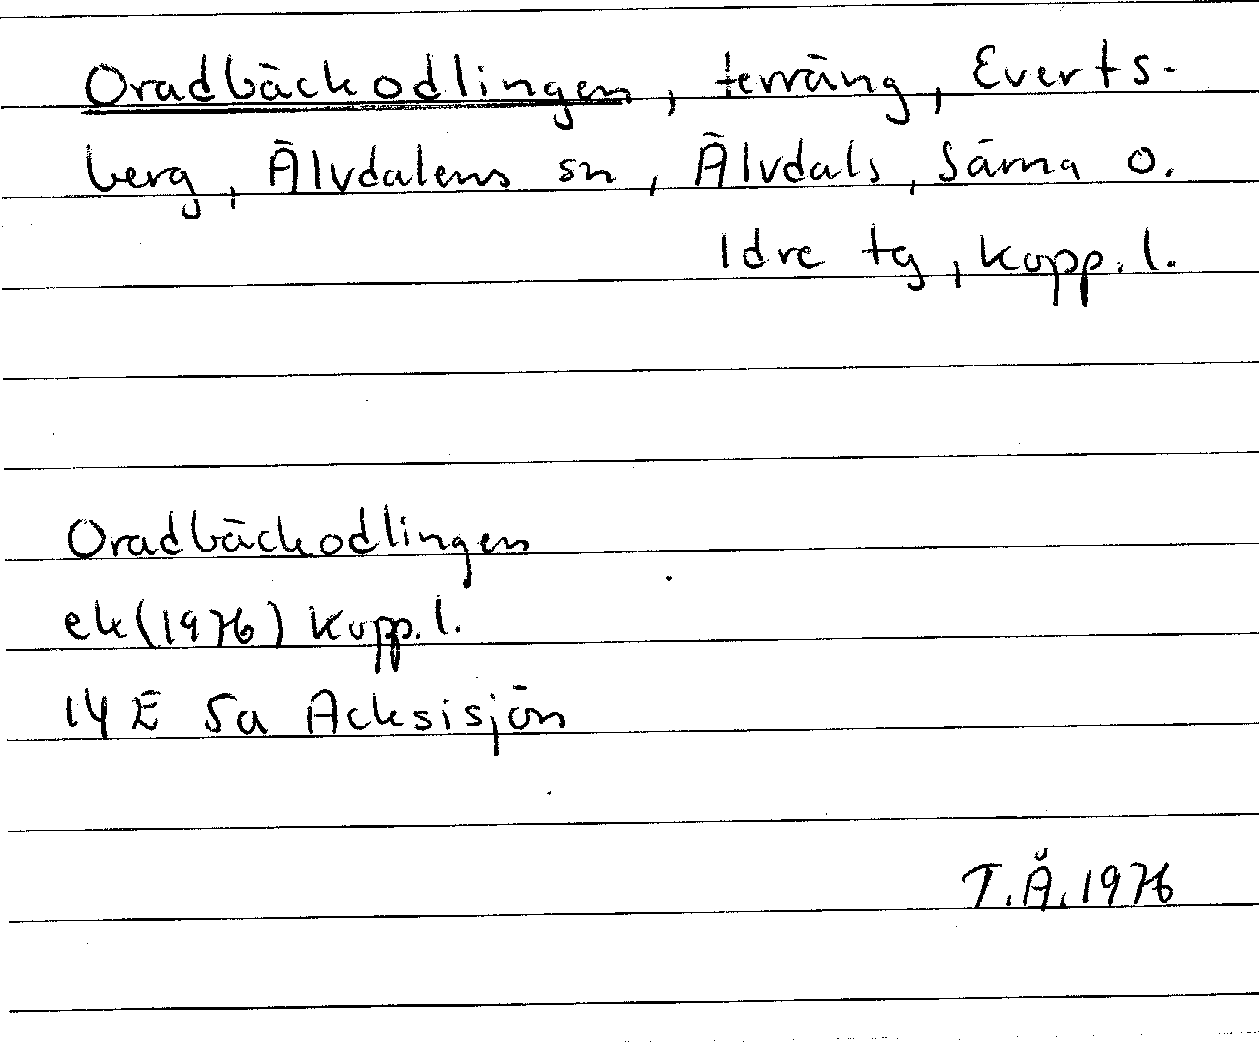 Oradbäckodlingen, terräng, Everts-
berg, Älvdalens sn, Älvdals, Särna o.
Idre tg, Kopp. l.
Oradbäckodlingen
ek (1976) Kopp. l.
14 E 5a Acksisjön
T.Å. 1976